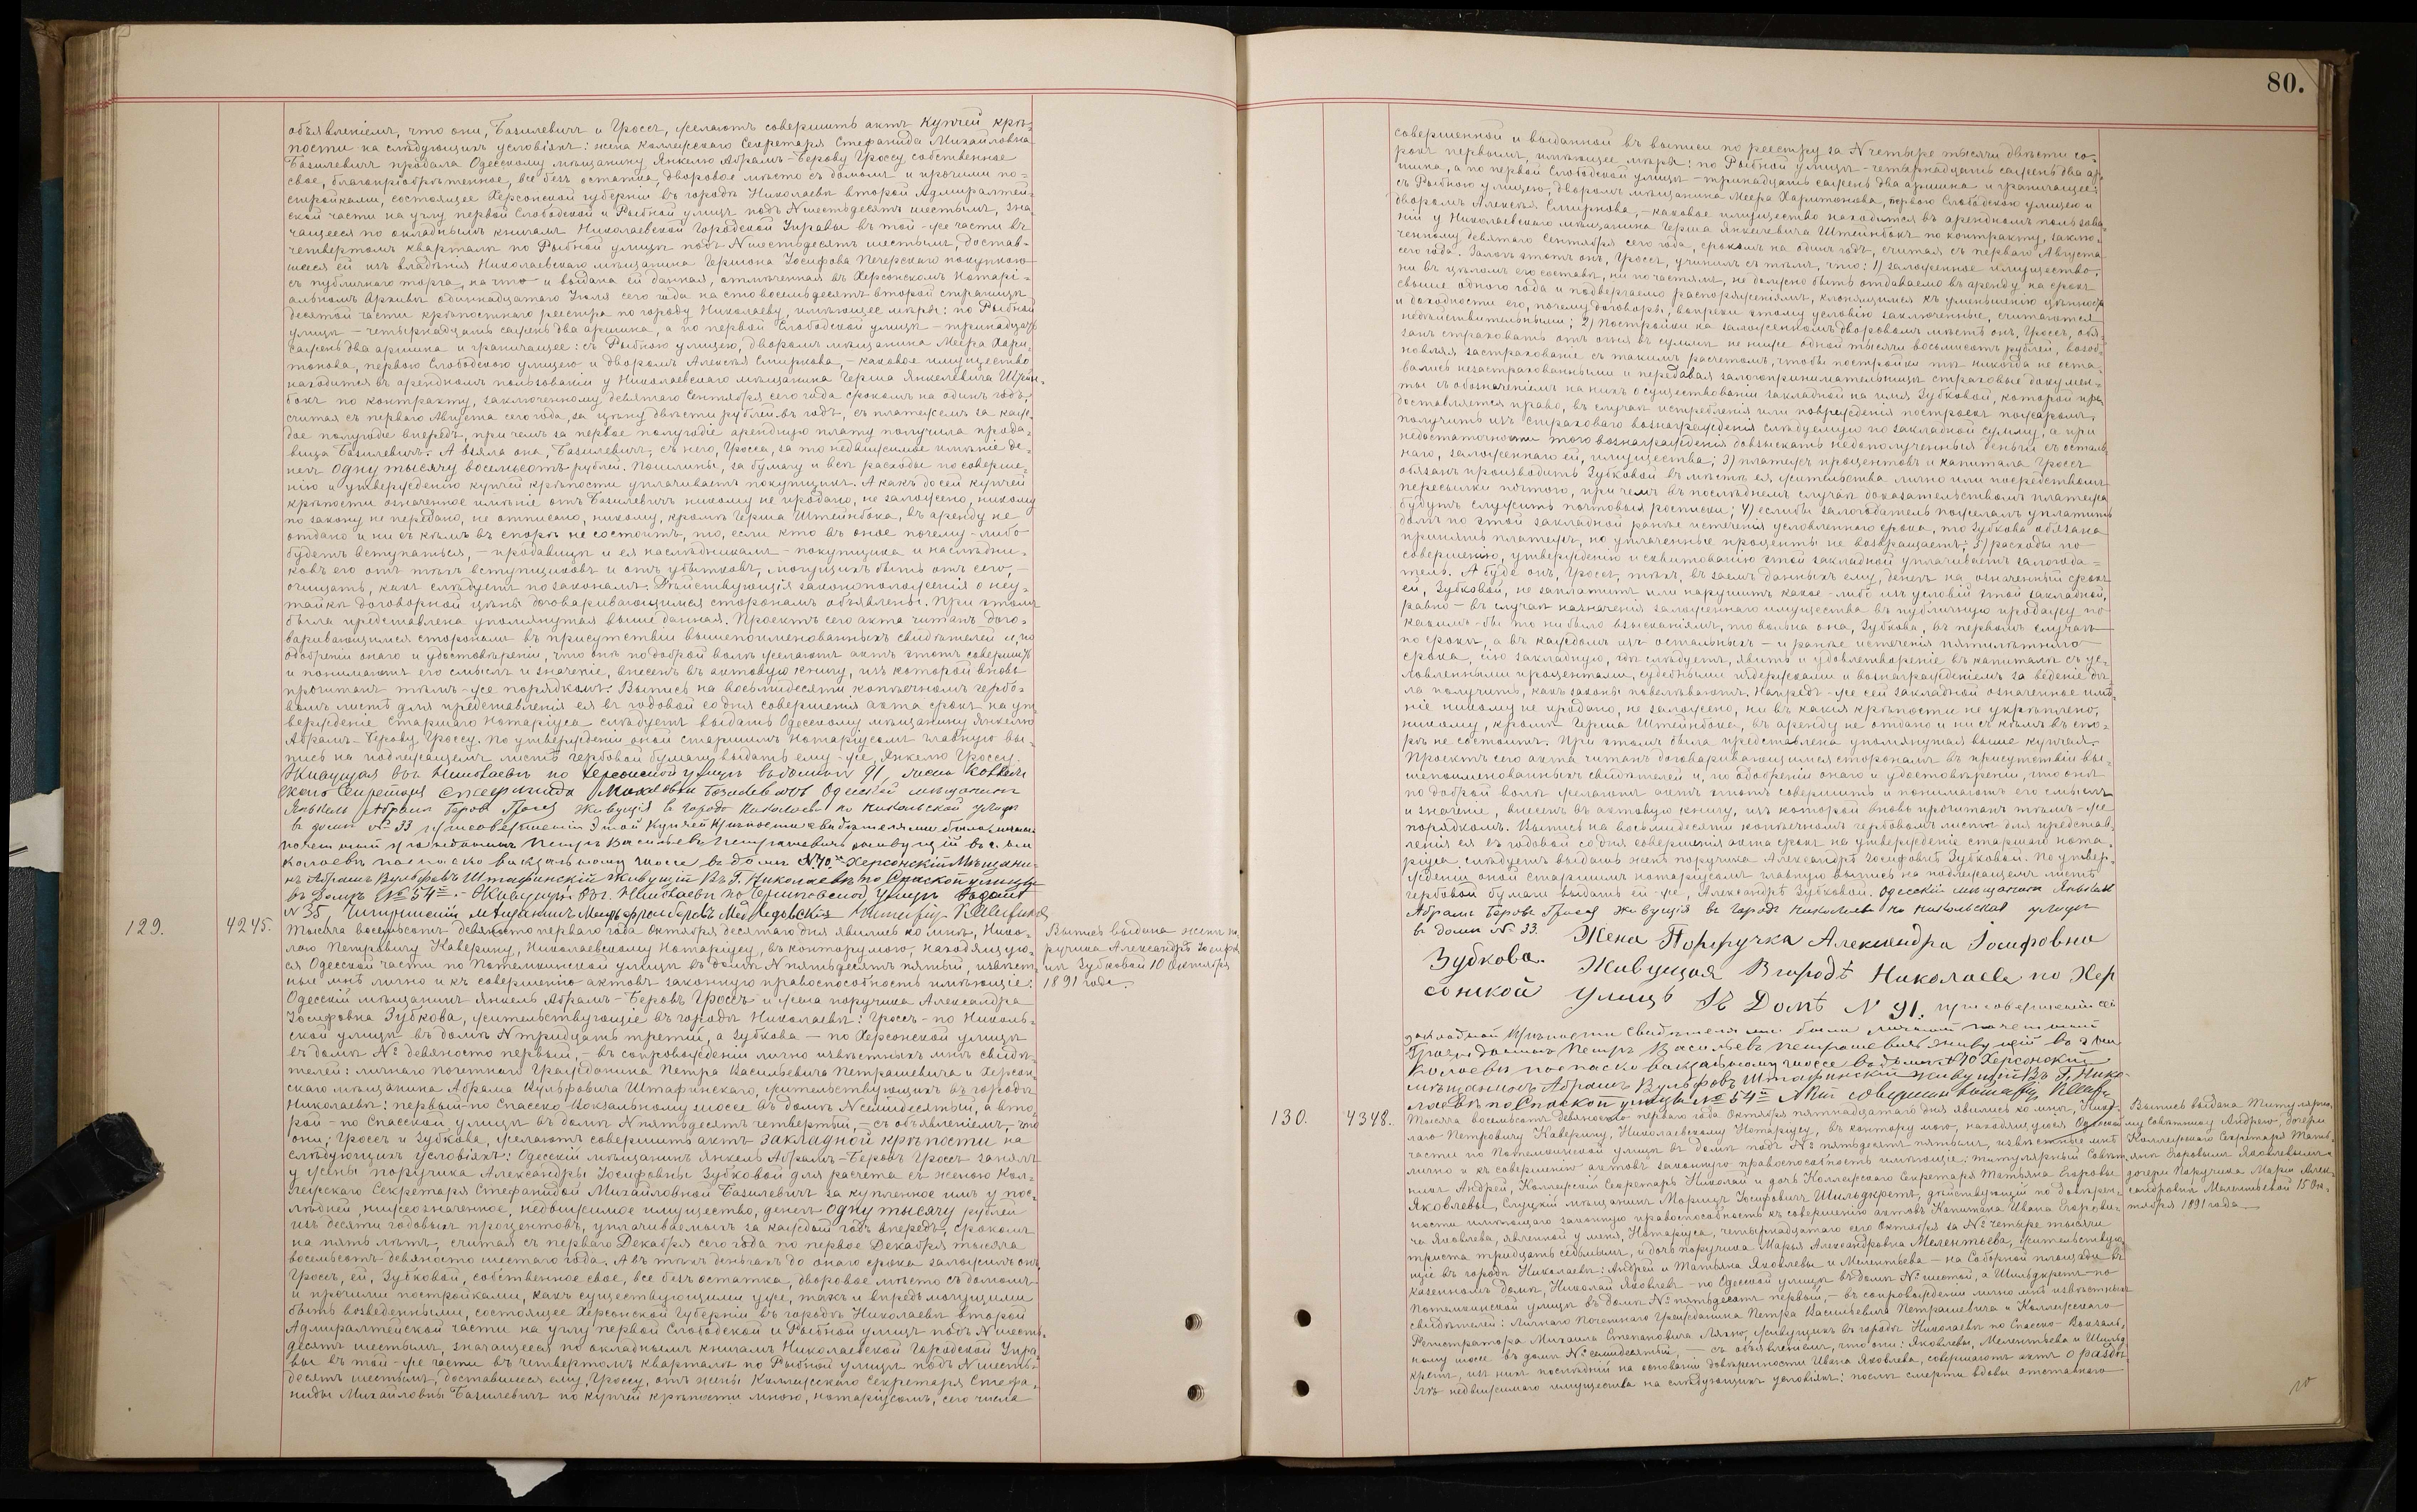 объявленіемъ, что они, Базилевичъ и Гроссъ, желаютъ совершить актъ купчей крѣ-
пости на слѣдующихъ условіяхъ: жена Коллежскаго Секретаря Стефанида Михайловна
Базилевичъ продала Одесскому мѣщанину Янкелю Абрамъ-Берову Гроссу собственное
свое, благопріобрѣтенное, все безъ остатка, дворовое мѣсто съ домомъ и прочими по-
стройками, состоящее Херсонской губерніи въ городѣ Николаевѣ второй Адмиралтей-
ской части на углу первой Слободской и Рыбной улицъ подъ N шестьдесятъ шестымъ, зна-
чащееся по окладнымъ книгамъ Николаевской Городской Управы въ той-же части въ
четвертомъ кварталѣ по Рыбной улицѣ подъ N шестьдесятъ шестымъ, достав-
шееся ей изъ владѣнія Николаевскаго мѣщанина Герщона Іосифова Печерскаго покупкою
съ публичнаго торга, на что и выдана ей данная, отмѣченная въ Херсонскомъ Нотарі-
альномъ Архивѣ одиннадцатаго Іюля сего года на сто восемьдесятъ второй страницѣ
десятой части крѣпостнаго реестра по городу Николаеву, имѣющее мѣры: по Рыбной
улицѣ – четырнадцать сажень два аршина, а по первой Слободской улицѣ – тринадцать
сажень два аршина и граничащее: съ Рыбною улицею, дворомъ мѣщанина Меера Хари-
тонова, первою Слободскою улицею и дворомъ Алексѣя Смирнова, – каковое имущество
находится въ арендномъ пользованіи у Николаевскаго мѣщанина Герша Янкелевича Штейн-
бокъ по контракту, заключенному девятаго Сентября сего года срокомъ на одинъ годъ,
считая съ перваго Августа сего года, за цѣну двѣсти рублей въ годъ, съ платежемъ за каж-
дое полугодіе впередъ, при чемъ за первое полугодіе арендную плату получила прода-
вица Базилевичъ. А взяла она, Базилевичъ, съ него, Гросса, за то недвижимое имѣніе де-
негъ одну тысячу восемьсотъ рублей. Пошлины, за бумагу и всѣ расходы по соверше-
нію и утвержденію купчей крѣпости уплачиваетъ покупщикъ. А какъ до сей купчей
крѣпости означенное имѣніе отъ Базилевичъ никому не продано, не заложено, никому
по закону не передано, не отписано, никому, кромѣ Герша Штейнбока, въ аренду не
отдано и ни съ кѣмъ въ спорѣ не состоитъ, то, если кто въ оное почему-либо
будетъ вступаться, – продавицѣ и ея наслѣдникамъ – покупщика и наслѣдни-
ковъ его отъ тѣхъ вступщиковъ и отъ убытковъ, могущихъ быть отъ сего, –
очищать, какъ слѣдуетъ по законамъ. Дѣйствующія законоположенія о неу-
тайкѣ договорной цѣны договаривающимся сторонамъ объявлены. При этомъ
была представлена упомянутая выше данная. Проектъ сего акта читанъ дого-
варивающимся сторонамъ въ присутствіи вышепоименованныхъ свидѣтелей и, по
одобреніи онаго и удостовѣреніи, что они по доброй волѣ желаютъ актъ этотъ совершить
и понимаютъ его смыслъ и значеніе, внесенъ въ актовую книгу, изъ которой вновь
прочитанъ тѣмъ-же порядкомъ. Выпись на восьмидесяти копѣечномъ гербо-
вомъ листѣ для представленія ея въ годовой со дня совершенія акта срокъ на ут-
вержденіе старшаго нотаріуса слѣдуетъ выдать Одесскому мѣщанину Янкелю
Абрамъ-Берову Гроссу. По утвержденіи оной старшимъ нотаріусомъ главную вы-
пись на подлежащемъ листѣ гербовой бумаги выдать ему-же, Янкелю Гроссу.
Живущая въ Николаевѣ по Херсонской улицѣ въ домѣ N 91, жена Коллеж
скаго Секретаря Стефанида Базилевичъ Одесскій мѣщанинъ
Янькель Абрамъ Беровъ Гросъ живущій в городѣ Николаевѣ по Никольской улицѣ
в домѣ № 33 при совершеніи Этой Купчей Крѣпости свидѣтелями были: личный
почетный гражданинъ Петръ Васильевъ Петрашевичъ живущій въ г. Ни
колаевѣ по Спаско вокзальному шоссе въ домѣ N 70 Херсонскій Мѣщани-
нъ Абрамъ Вульфовъ Штафинскій живущій въ Г. Николаевѣ по Спаской улицѣ
въ Домѣ № 54. – Живущій въ г. Николаевѣ по улицѣ въ домѣ
N 35, мѣщанинъ
129.
4245.
Тысяча восемьсотъ девяносто перваго года Октября десятаго дня явились ко мнѣ, Нико-
лаю Петровичу Каверину, Николаевскому Нотаріусу, въ контору мою, находящую-
ся Одесской части по Потемкинской улицѣ въ домѣ N пятьдесятъ пятый, извѣст-
ные мнѣ лично и къ совершенію актовъ законную правоспособность имѣющіе:
Одесскій мѣщанинъ Янкель Абрамъ-Беровъ Гроссъ и жена поручика Александра
Іосифовна Зубкова, жительствующіе въ городѣ Николаевѣ: Гроссъ – по Николь-
ской улицѣ въ домѣ N тридцать третій, а Зубкова – по Херсонской улицѣ
въ домѣ № девяносто первый, – въ сопровожденіи лично извѣстныхъ мнѣ свидѣ-
телей: личнаго почетнаго гражданина Петра Васильевича Петрашевича и Херсон-
скаго мѣщанина Абрама Вульфовича Штафинскаго, жительствующихъ въ городѣ
Николаевѣ: первый – по Спасско Вокзальному шоссе въ домѣ N семидесятый, а вто-
рой – по Спасской улицѣ въ домѣ N пятьдесятъ четвертый, – съ объявленіемъ, – что
они, Гроссъ и Зубкова, желаютъ совершить актъ закладной крѣпости на
слѣдующихъ условіяхъ: Одесскій мѣщанинъ Янкель Абрамъ-Беровъ Гроссъ занялъ
у жены поручика Александры Іосифовны Зубковой для расчета съ женою Кол-
лежскаго Секретаря Стефанидой Михайловной Базилевичъ за купленное имъ у пос-
лѣдней, нижеозначенное, недвижимое имущество, денегъ одну тысячу рублей
изъ десяти годовыхъ процентовъ, уплачиваемыхъ за каждый годъ впередъ, срокомъ
на пять лѣтъ, считая съ перваго Декабря сего года по первое Декабря тысяча
восемьсотъ девяносто шестаго года. А въ тѣхъ деньгахъ до онаго срока заложилъ онъ,
Гроссъ, ей, Зубковой, собственное свое, все безъ остатка, дворовое мѣсто съ домомъ
и прочими постройками, какъ существующими уже, такъ и впредь могущими
быть возведенными, состоящее Херсонской губерніи въ городѣ Николаевѣ второй
Адмиралтейской части на углу первой Слободской и Рыбной улицъ подъ N шесть-
десятъ шестымъ, значащееся по окладнымъ книгамъ Николаевской Городской Упра-
вы въ той-же части въ четвертомъ кварталѣ по Рыбной улицѣ подъ N шесть-
десятъ шестымъ, доставшееся ему, Гроссу, отъ жены Коллежскаго Секретаря Стефа-
ниды Михайловны Базилевичъ по купчей крѣпости мною, нотаріусомъ, сего числа
Выпись выдана женѣ по-
ручика Александрѣ Іосифов-
нѣ Зубковой 10 Октября
1891 года.
80.
совершенной и выданной въ выписи по реестру за N четыре тысячи двѣсти со-
рокъ первымъ, имѣющее мѣры: по Рыбной улицѣ – четырнадцать сажень два ар-
шина, а по первой Слободской улицѣ – тринадцать сажень два аршина и граничащее:
съ Рыбною улицею, дворомъ мѣщанина Меера Харитонова, первою Слободскою улицею и
дворомъ Алексѣя Смирнова, – каковое имущество находится въ арендномъ пользова-
ніи у Николаевскаго мѣщанина Герша Янкелевича Штейнбокъ по контракту, заклю-
ченному девятаго Сентября сего года, срокомъ на одинъ годъ, считая съ перваго Августа
сего года. Залогъ этотъ онъ, Гроссъ, учинилъ съ тѣмъ, что: 1) заложенное имущество,
ни въ цѣломъ его составѣ, ни по частямъ, не должно быть отдаваемо въ аренду на срокъ
свыше одного года и подвергаемо распоряженіямъ, клонящимся къ уменьшенію цѣнности
и доходности его, почему договоры, вопреки этому условію заключенные, считаются
недѣйствительными; 2) Постройки на заложенномъ дворовомъ мѣстѣ онъ, Гроссъ, обя-
занъ страховать отъ огня въ суммѣ не ниже одной тысячи восьмисотъ рублей, возоб-
новляя застрахованіе съ такимъ расчетомъ, чтобы постройки тѣ никогда не оста-
вались незастрахованными и передавая залогопринимательницѣ страховые докумен-
ты съ обозначеніемъ на нихъ о существованіи закладной на имя Зубковой, которой пре-
доставляется право, въ случаѣ истребленія или поврежденія построекъ пожаромъ,
получить изъ страховаго вознагражденія слѣдуемую по закладной сумму, а при
недостаточности того вознагражденія довзыскать недополученныя деньги съ осталь-
наго, заложеннаго ей, имущества; 3) платежъ процентовъ и капитала Гроссъ
обязанъ производить Зубковой въ мѣстѣ ея жительства лично или посредствомъ
пересылки почтою, при чемъ въ послѣднемъ случаѣ доказательствомъ платежа
будутъ служить почтовыя росписки; 4) если бы залогодатель пожелалъ уплатить
долгъ по этой закладной ранѣе истеченія условленнаго срока, то Зубкова обязана
принять платежъ, но уплаченные проценты не возвращаетъ; 5) расходы по
совершенію, утвержденію и сквитованію этой закладной уплачиваетъ залогода-
тель. А буде онъ, Гроссъ, тѣхъ, въ заемъ данныхъ ему, денегъ на означенный срокъ
ей, Зубковой, не заплатитъ или нарушитъ какое-либо изъ условій этой закладной,
равно – въ случаѣ назначенія заложеннаго имущества въ публичную продажу по
какимъ-бы то ни было взысканіямъ, то вольна она, Зубкова, въ первомъ случаѣ
по срокѣ, а въ каждомъ изъ остальныхъ – и ранѣе истеченія пятилѣтняго
срока, сію закладную, гдѣ слѣдуетъ, явить и удовлетвореніе въ капиталѣ съ ус-
ловленными процентами, судебными издержками и вознагражденіемъ за веденіе дѣ-
ла получить, какъ законы повелѣваютъ. Напредъ-же сей закладной означенное имѣ-
ніе никому не продано, не заложено, ни въ какія крѣпости не укрѣплено,
никому, кромѣ Герша Штейнбока, въ аренду не отдано и ни съ кѣмъ въ спо-
рѣ не состоитъ. При этомъ была представлена упомянутая выше купчая.
Проектъ сего акта читанъ договаривающимся сторонамъ въ присутствіи вы-
шепоименованныхъ свидѣтелей и, по одобреніи онаго и удостовѣреніи, что они
по доброй волѣ желаютъ актъ этотъ совершить и понимаютъ его смыслъ
и значеніе, внесенъ въ актовую книгу, изъ которой вновь прочитанъ тѣмъ-же
порядкомъ. Выпись на восьмидесяти копѣечномъ гербовомъ листѣ для представ-
ленія ея въ годовой со дня совершенія акта срокъ на утвержденіе старшаго нота-
ріуса слѣдуетъ выдать женѣ поручика Александрѣ Іосифовнѣ Зубковой. По утвер-
жденіи оной старшимъ нотаріусомъ главную выпись на подлежащемъ листѣ
гербовой бумаги выдать ей-же, Александрѣ Зубковой. Одесскій мѣщанинъ Янькель
Абрамъ Беровъ Гросъ живущій в городѣ Николаевѣ по Никольская улицѣ
в домѣ № 33. Жена Поручика Александра Іосифовна
Зубкова. Живущая в городѣ Николаеве по Хер
сонской улицѣ въ Домѣ N 91. При совершеніи сей
закладной Крѣпости свидѣтелями были личный почетный
Гражданинъ Петръ Васильевъ Петрашевичъ живущій въ г. Ни
колаевѣ по Спаско вокзальному шоссе въ домѣ N 70 Херсонскій
мѣщанинъ Абрамъ Вульфовъ Штафинскій живущій въ Г. Нико-
лаевѣ по Спаской улицѣ № 54
130.
4348.
Тысяча восемьсотъ девяносто перваго года Октября пятнадцатаго дня явились ко мнѣ, Нико-
лаю Петровичу Каверину, Николаевскому Нотаріусу, въ контору мою, находящуюся Одесской
части по Потемкинской улицѣ въ домѣ подъ № пятьдесятъ пятымъ, извѣстные мнѣ
лично и къ совершенію актовъ законную правоспособность имѣющіе: титулярный Совѣт-
никъ Андрей, Коллежскій Секретарь Николай и дочь Коллежскаго Секретаря Татьяна Егоровы
Яковлевы, Слуцкій мѣщанинъ Морицъ Іосифовичъ Шильдкретъ, дѣйствующій по довѣрен-
ности имѣющаго законную правоспособность къ совершенію актовъ Капитана Ивана Егорови-
ча Яковлева, явленной у меня, Нотаріуса, четырнадцатаго сего Октября за № четыре тысячи
триста тридцать седьмымъ, и дочь поручика Марья Александровна Мелентьева, жительствую-
щіе въ городѣ Николаевѣ: Андрей и Татьяна Яковлевы и Мелентьева – на Соборной площади въ
казенномъ домѣ, Николай Яковлевъ – по Одесской улицѣ въ домѣ № шестой, а Шильдкретъ – по
Потемкинской улицѣ въ домѣ № пятьдесятъ первый, – въ сопровожденіи лично мнѣ извѣстныхъ
свидѣтелей: Личнаго Почетнаго Гражданина Петра Васильевича Петрашевича и Коллежскаго
Регистратора Михаила Степановича Ляхно, живущихъ въ городѣ Николаевѣ по Спасско-Вокзаль-
ному шоссе въ домѣ № семидесятый, – съ объявленіемъ, что они: Яковлевы, Мелентьева и Шильд-
кретъ, изъ нихъ послѣдній на основаніи довѣренности Ивана Яковлева, совершаютъ актъ о раздѣ-
лѣ недвижимаго имущества на слѣдующихъ условіяхъ: послѣ смерти вдовы отставнаго
Выпись выдана Титулярно-
му совѣтнику Андрею, дочери
Коллежскаго Секретаря Тать-
янѣ Егоровымъ Яковлевымъ и
дочери Поручика Маріи Алек-
сандровнѣ Мелентьевой 15 Ок-
тября 1891 года